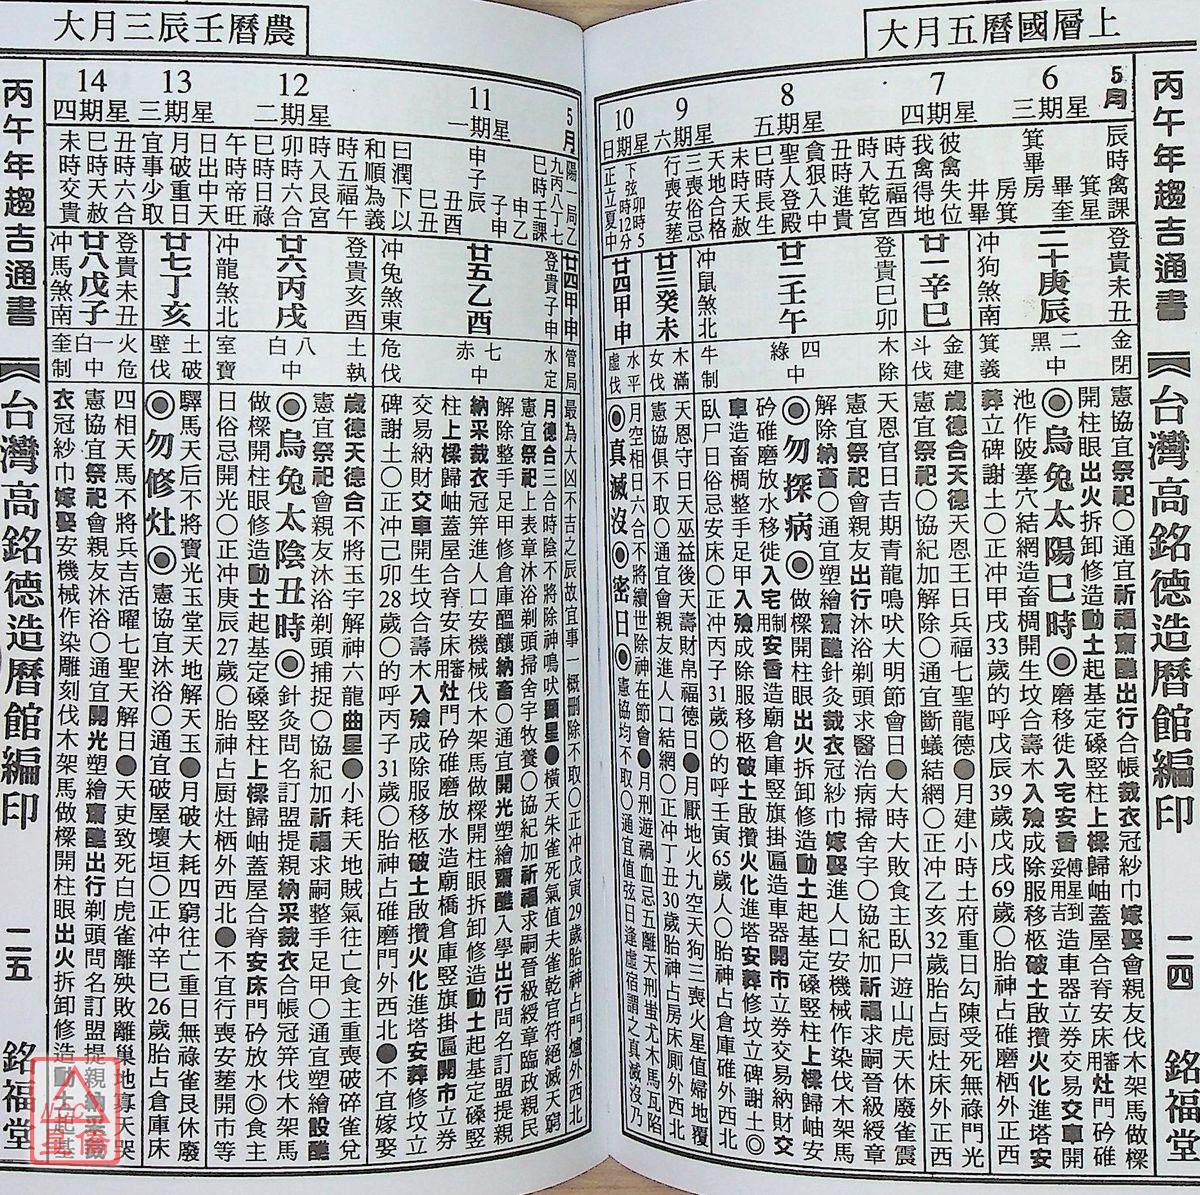 上層國曆五月大
農曆壬辰三月大
丙午年趨吉通書
台灣高銘德造曆館編印
二四
銘福堂
5月
6
星期三
辰時禽課
箕星
畢奎
箕畢房
房箕
井畢
登貴未丑
二十庚辰
冲狗煞南
金閉
二黑中
箕義
憲協宜祭祀○通宜祈福齋醮出行合帳裁衣冠紗巾嫁娶會親友伐木架馬做樑
開柱眼出火拆卸修造動土起基定磉竪柱上樑歸岫蓋屋合脊安床用審灶門砛碓
◎烏兔太陽巳時◎磨移徙入宅安香傅星到妥用吉造車器立券交易交車開
池作陂塞穴結網造畜椆開生坟合壽木入殮成除服移柩破土啟攢火化進塔安
葬立碑謝土○正冲甲戌33歲的呼戊辰39歲戊戌69歲○胎神占碓磨栖外正西
7
星期四
彼禽失位
我禽得地
廿一辛巳
金建
斗伐
歲德合天德天恩王日兵福七聖龍德●月建小時土府重日勾陳受死無祿門光
憲宜祭祀○協紀加解除○通宜斷蟻結網○正冲乙亥32歲胎占厨灶床外正西
8
星期五
時五福酉
時入乾宮
丑時進貴
貪狠入中
聖人登殿
巳時長生
未時天赦
天地合格
登貴巳卯
廿二壬午
冲鼠煞北
木除
四綠中
牛制
天恩官日吉期青龍鳴吠大明節會日●大時大敗食主臥尸遊山虎天休廢雀震
憲宜祭祀會親友出行沐浴剃頭求醫治病掃舍宇○協紀加祈福求嗣晉級綬章
解除納畜○通宜塑繪齋醮針灸裁衣冠紗巾嫁娶進人口安機械作染伐木架馬
◎勿探病◎做樑開柱眼出火拆卸修造動土起基定磉竪柱上樑歸岫安
砛碓磨放水移徙入宅用制安香造廟倉庫竪旗掛匾造車器開市立券交易納財交
車造畜椆整手足甲入殮成除服移柩破土啟攢火化進塔安葬修坟立碑謝土◎
臥尸日俗忌安床○正冲丙子31歲○的呼壬寅65歲人○胎神占倉庫碓外西北
9
星期六
三喪俗忌
行喪安葬
廿三癸未
木滿
女伐
天恩守日天巫益後天壽財帛福德日●月厭地火九空天狗三喪火星值婦地覆
憲協俱不取○通宜會親友進人口結網○正冲丁丑30歲胎神占房床厠外西北
10
星期日
下弦卯時5
時12分
正立夏中
廿四甲申
水平
虛伐
月空相日六合不將續世除神在節會●月刑遊禍血忌五離天刑蚩尤木馬瓦陷
◎真滅沒◎密日◎憲協均不取○通宜值弦日逢虛宿謂之真滅沒乃
丙午年趨吉通書
台灣高銘德造曆館編印
二五
銘福堂
5月
陽一局乙
九丙八丁七
廿四甲申
管局
最為大凶不吉之辰故宜事一概刪除不取○正冲戊寅29歲胎神占門爐外西北
11
星期一
巳時壬課
申乙
子申
申子辰
丑酉
巳丑
曰潤下以
和順為義
登貴子申
廿五乙酉
冲兔煞東
水定
七赤中
危伐
月德合三合時陰不將除神鳴吠顯星●橫天朱雀死氣值夫雀乾官符絕滅天窮
憲宜祭祀上表章沐浴剃頭掃舍宇牧養○協紀加祈福求嗣晉級綬章臨政親民
解除整手足甲修倉庫醞釀納畜○通宜開光塑繪齋醮入學出行問名訂盟提親
納采裁衣冠笄進人口安機械伐木架馬做樑開柱眼拆卸修造動土起基定磉竪
柱上樑歸岫蓋屋合脊安床用審灶門砛碓磨放水造廟橋倉庫竪旗掛匾開市立券
交易納財交車開生坟合壽木入殮成除服移柩破土啟攢火化進塔安葬修坟立
碑謝土○正冲己卯28歲○的呼丙子31歲○胎神占碓磨門外西北●不宜嫁娶
12
星期二
時五福午
時入艮宮
卯時六合
巳時日祿
午時帝旺
日出中天
登貴亥酉
廿六丙戌
冲龍煞北
土執
八白中
室寶
歲德天德合不將玉宇解神六龍曲星●小耗天地賊氣往亡食主重喪破碎雀兌
憲宜祭祀會親友沐浴剃頭捕捉○協紀加祈福求嗣整手足甲○通宜塑繪設醮
◎烏兔太陰丑時◎針灸問名訂盟提親納采裁衣合帳冠笄伐木架馬
做樑開柱眼修造動土起基定磉竪柱上樑歸岫蓋屋合脊安床門砛放水◎食主
日俗忌開光○正冲庚辰27歲○胎神占厨灶栖外西北●不宜行喪安葬開市等
13
星期三
月破重日
宜事少取
廿七丁亥
土破
壁伐
驛馬天后不將寶光玉堂天地解天玉●月破大耗四窮往亡重日無祿雀艮休廢
◎勿修灶◎憲協宜沐浴○通宜破屋壞垣○正冲辛巳26歲胎占倉庫床
14
星期四
丑時六合
巳時天赦
未時交貴
登貴未丑
廿八戊子
冲馬煞南
火危
一白中
奎制
四相天馬不將兵吉活曜七聖天解日●天吏致死白虎雀離殃敗離巢地寡天哭
憲協宜祭祀會親友沐浴○通宜開光塑繪齋醮出行剃頭問名訂盟提親納采裁
衣冠紗巾嫁娶安機械作染雕刻伐木架馬做樑開柱眼出火拆卸修造動土起基